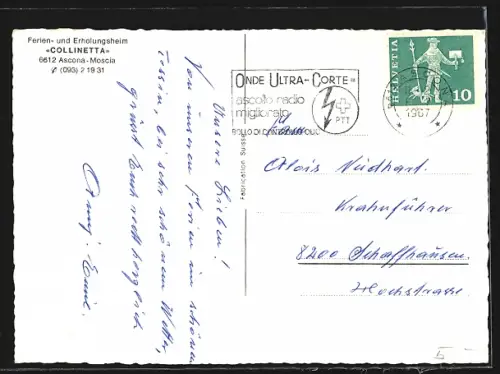 Ferien- und Erholungsheim
«COLLINETTA»
6612 Ascona-Moscia
(093) 2 19 31
Unsere Lieben!
Von unseren Ferien im schönen
Tessin, bei sehr schönem Wetter,
grüsst Euch recht herzlich
Emil
Fabrication Suisse
ONDE ULTRA-CORTE=
ascolto radio
migliorato
PTT
HELVETIA
10
1967
Alois Neidhart
Kranführer
8200 Schaffhausen
Hochstrasse